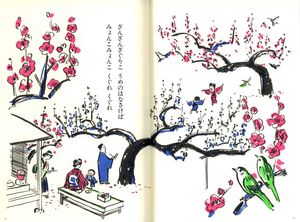 ざんざんざぐりこ うめのはなさけば
みょんこみょんこ くぐれ くぐれ